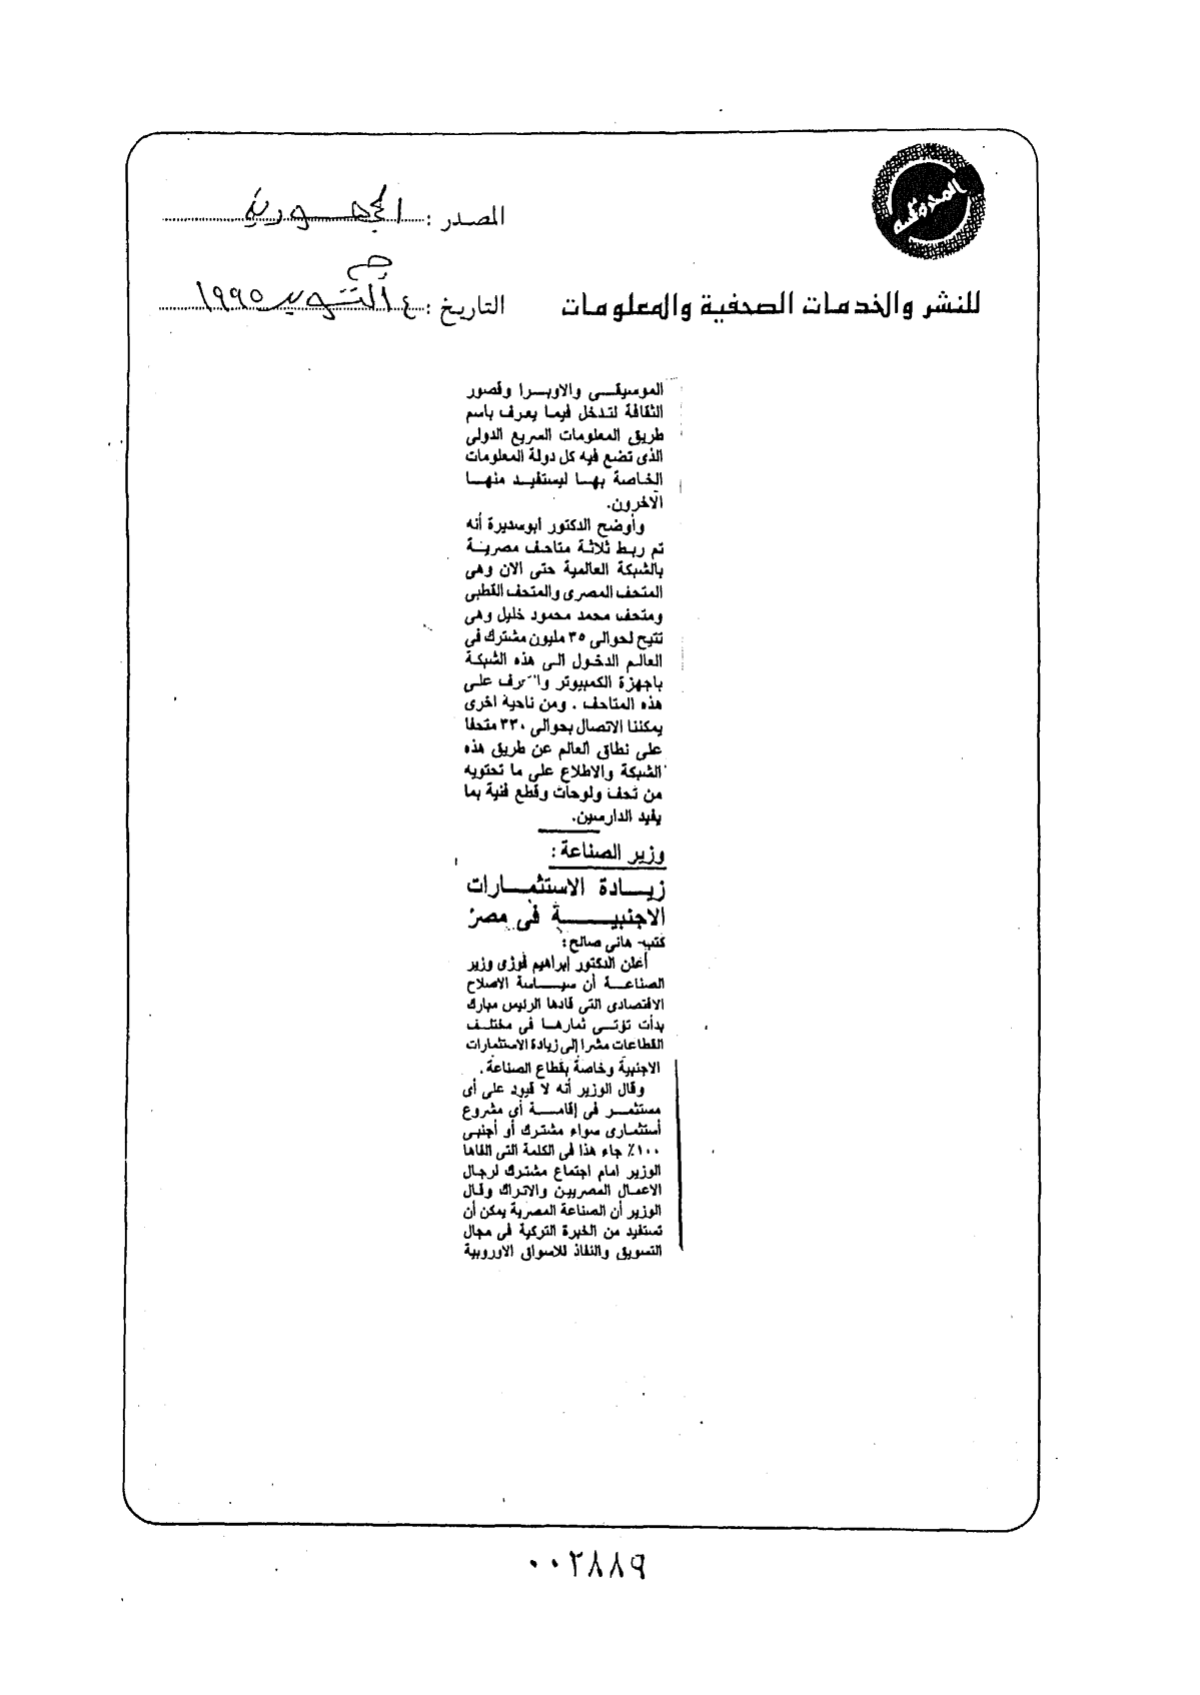 المصدر : الجمهورية
التاريخ : ٤ اكتوبر ١٩٩٥
للنشر والخدمات الصحفية والمعلومات
الموسيقى والاوبرا وقصور
الثقافة لتدخل فيما يعرف باسم
طريق المعلومات السريع الدولى
الذى تضع فيه كل دولة المعلومات
الخاصة بها ليستفيد منها
الآخرون.
وأوضح الدكتور ابوسديرة أنه
تم ربط ثلاثة متاحف مصرية
بالشبكة العالمية حتى الان وهى
المتحف المصرى والمتحف القبطى
ومتحف محمد محمود خليل وهى
تتيح لحوالى ٣٥ مليون مشترك فى
العالم الدخول الى هذه الشبكة
باجهزة الكمبيوتر على
هذه المتاحف . ومن ناحية اخرى
يمكننا الاتصال بحوالى ٣٣٠ متحفا
على نطاق العالم عن طريق هذه
الشبكة والاطلاع على ما تحتويه
من تحف ولوحات وقطع فنية بما
يفيد الدارسين.
وزير الصناعة :
زيادة الاستثمارات
الاجنبية فى مصر
كتب- هانى صالح:
أعلن الدكتور إبراهيم فوزى وزير
الصناعة أن سياسة الاصلاح
الاقتصادى التى قادها الرئيس مبارك
بدأت تؤتى ثمارها فى مختلف
القطاعات مشرا إلى زيادة الاستثمارات
الاجنبية وخاصة بقطاع الصناعة .
وقال الوزير أنه لا قيود على أى
مستثمر فى إقامة أى مشروع
أستثمارى سواء مشترك أو أجنبى
١٠٠٪ جاء هذا فى الكلمة التى القاها
الوزير امام اجتماع مشترك لرجال
الاعمال المصريين والاتراك وقال
الوزير أن الصناعة المصرية يمكن أن
تستفيد من الخبرة التركية فى مجال
التسويق والنفاذ للاسواق الاوروبية
٠٠٢٨٨٩